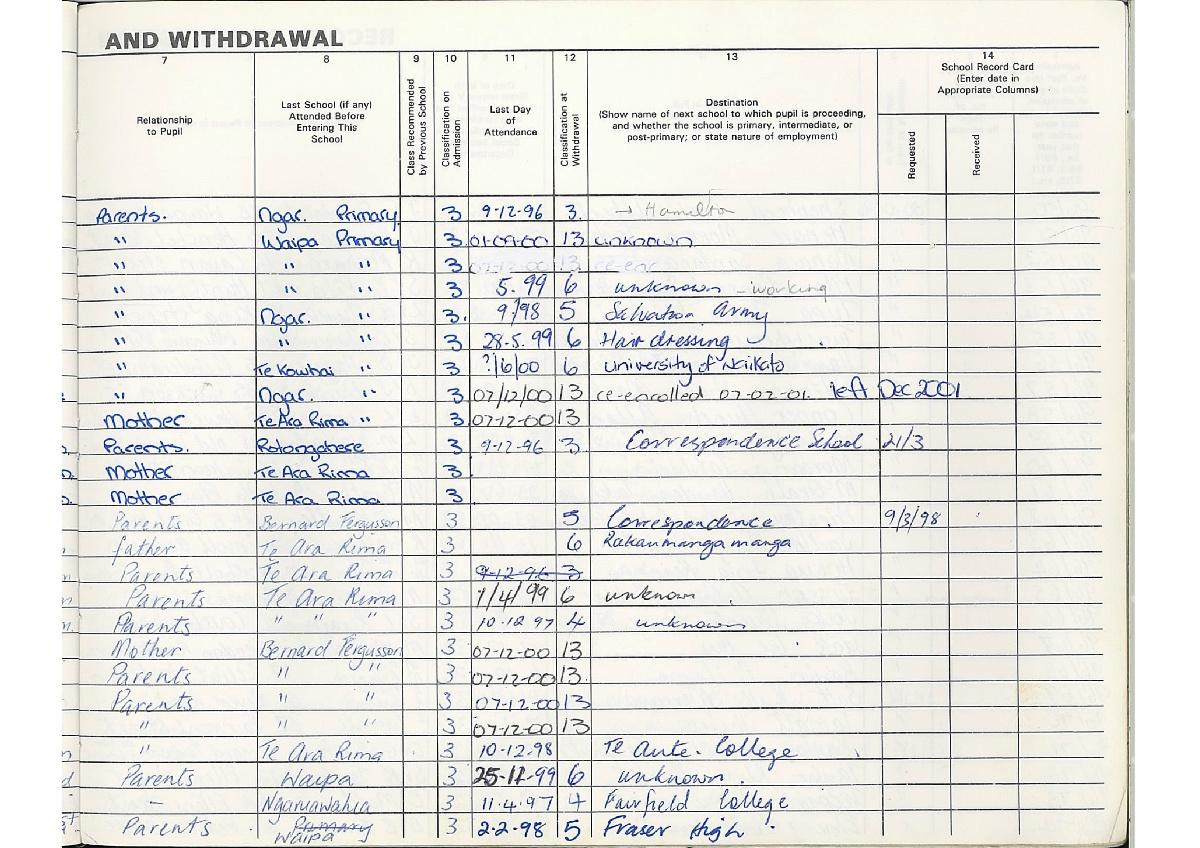 AND WITHDRAWAL
7 8 9 10 11 12 13 14
Relationship to Pupil
Last School (if any) Attended Before Entering This School
Class Recommended by Previous School
Classification on Admission
Last Day of Attendance
Classification at Withdrawal
Destination
(Show name of next school to which pupil is proceeding, and whether the school is primary, intermediate, or post-primary; or state nature of employment)
School Record Card
(Enter date in Appropriate Columns)
Requested
Received
Parents. Ngar. Primary 3 9-12-96 3. → Hamilton
" Waipa Primary 3 01-09-00 13 unknown
" " " 3 07-12-00 13 re-enr
" " " 3 5.99 6 unknown - working
" Ngar. " 3. 9/98 5 Salvation Army
" " " 3 28-5.99 6 Hairdressing
" Te Kowhai " 3 ?/6/00 6 University of Waikato
" Ngar. " 3 07/12/00 13 re-enrolled 07-02-01. left Dec 2001
Mother Te Ara Rima " 3 07-12-00 13
Parents. Rotongahere 3 9-12-96 3 Correspondence School 21/3
Mother Te Ara Rima 3
Mother Te Ara Rima 3
Parents Bernard Fergusson 3 5 Correspondence 9/3/98
father Te Ara Rima 3 6 Rakaumangamanga
Parents Te Ara Rima 3 9-12-96 3
Parents Te Ara Rima 3 1/4/99 6 unknown
Parents " " " 3 10-12 97 4 unknown
Mother Bernard Fergusson 3 07-12-00 13
Parents " " 3 07-12-00 13
Parents " " 3 07-12-00 13
" " " 3 07-12-00 13
" Te Ara Rima 3 10-12-98 Te Aute College
Parents Waipa 3 25-11-99 6 unknown.
- Ngaruawahia 3 11.4.97 4 Fairfield College
Parents Primary Waipa 3 2-2-98 5 Fraser High